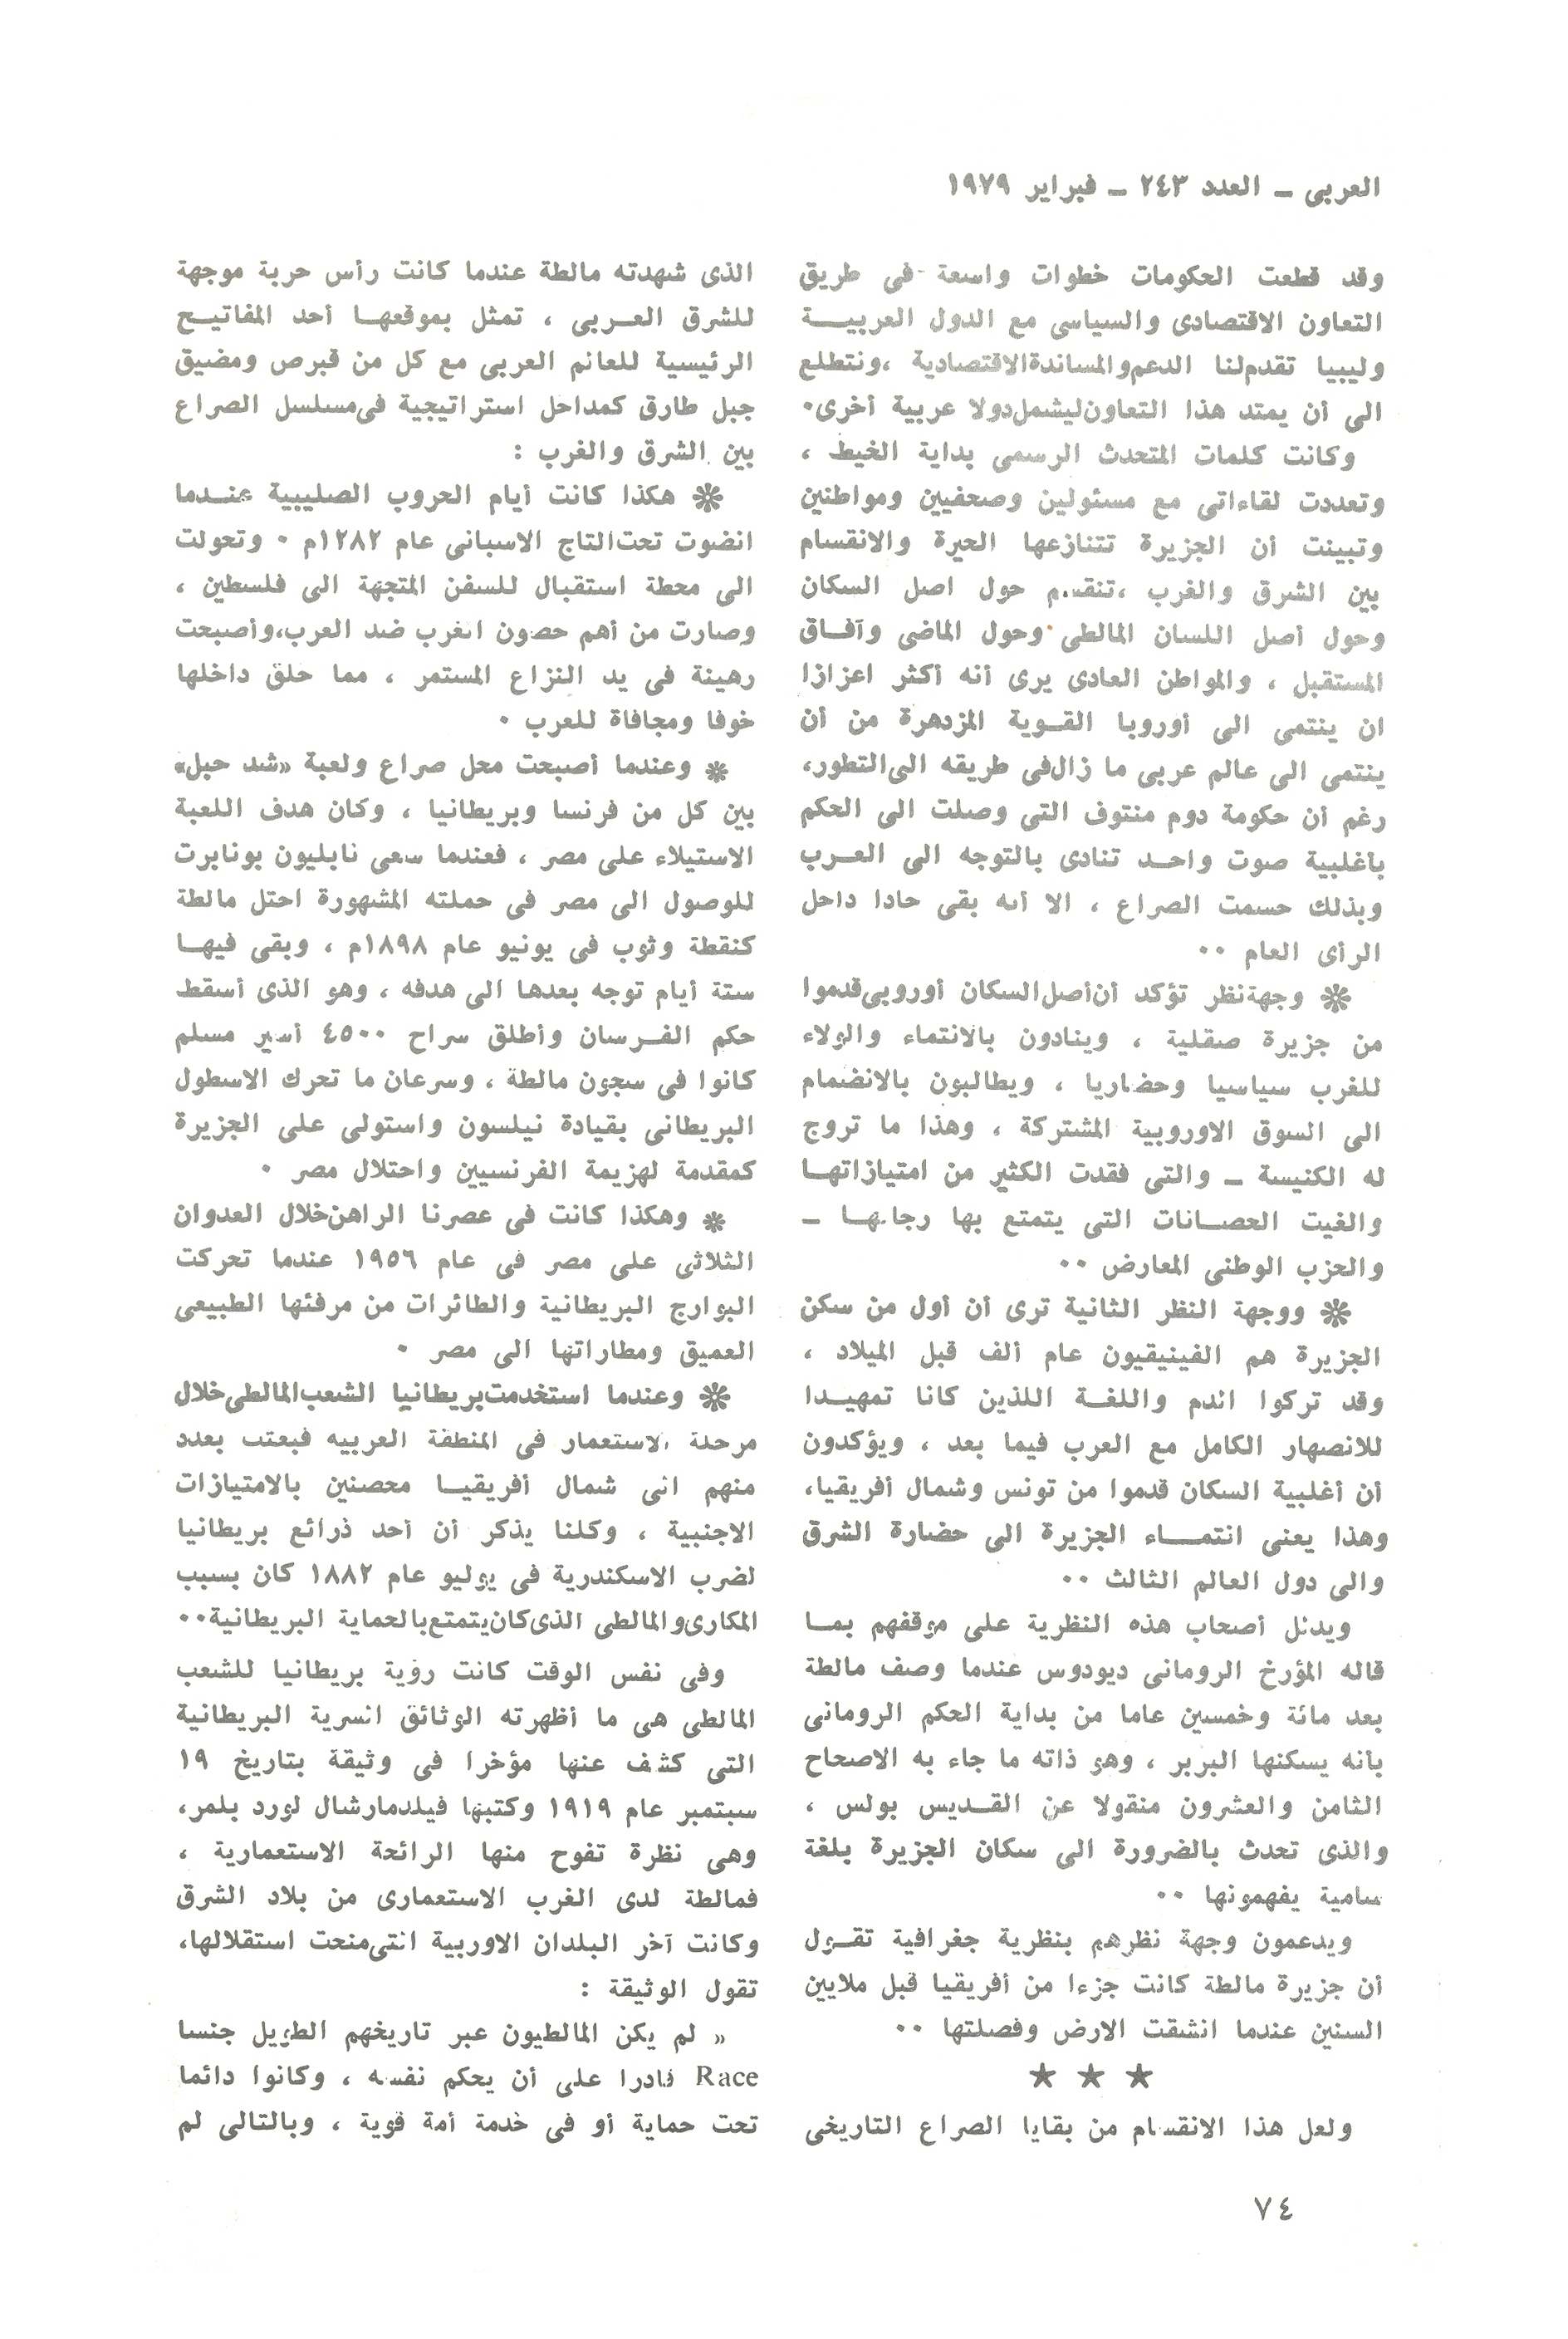 العربى – العدد ٢٤٣ – فبراير ١٩٧٩
وقد قطعت الحكومات خطوات واسعة فى طريق
التعاون الاقتصادى والسياسى مع الدول العربيــة
وليبيا تقدم لنا الدعم والمساندة الاقتصادية ، ونتطلع
الى أن يمتد هذا التعاون ليشمل دولا عربية أخرى٠
وكانت كلمات المتحدث الرسمى بداية الخيط ،
وتعددت لقاءاتى مع مسئولين وصحفيين ومواطنين
وتبينت أن الجزيرة تتنازعها الحيرة والانقسام
بين الشرق والغرب ، تنقسم حول اصل السكان
وحول أصل اللسان المالطى وحول الماضى وآفــاق
المستقبل ، والمواطن العادى يرى أنه أكثر اعزازا
ان ينتمى الى أوروبا القــوية المزدهرة من أن
ينتمى الى عالم عربى ما زال فى طريقه الى التطور،
رغم أن حكومة دوم منتوف التى وصلت الى الحكم
بأغلبية صوت واحـد تنادى بالتوجه الى العـرب
وبذلك حسمت الصراع ، الا أنه بقى حادا داخل
الرأى العام ٠٠
❋ وجهة نظر تؤكد أن أصل السكان أوروبى قدموا
من جزيرة صقلية ، وينادون بالانتماء والولاء
للغرب سياسيا وحضاريا ، ويطالبون بالانضمام
الى السوق الاوروبية المشتركة ، وهذا ما تروج
له الكنيسة – والتى فقدت الكثير من امتيازاتهـا
والغيت الحصــانات التى يتمتع بها رجالهــا –
والحزب الوطنى المعارض ٠٠
❋ ووجهة النظر الثانية ترى أن أول من سكن
الجزيرة هم الفينيقيون عام ألف قبل الميلاد ،
وقد تركوا الدم واللغــة اللذين كانا تمهيـدا
للانصهار الكامل مع العرب فيما بعد ، ويؤكدون
أن أغلبية السكان قدموا من تونس وشمال أفريقيا،
وهذا يعنى انتمــاء الجزيرة الى حضارة الشرق
والى دول العالم الثالث ٠٠
ويدلل أصحاب هذه النظرية على موقفهم بمــا
قاله المؤرخ الرومانى ديودوس عندما وصف مالطة
بعد مائة وخمسين عاما من بداية الحكم الرومانى
بأنه يسكنها البربر ، وهو ذاته ما جاء به الاصحاح
الثامن والعشرون منقولا عن القــديس بولس ،
والذى تحدث بالضرورة الى سكان الجزيرة بلغة
سامية يفهمونها ٠٠
ويدعمون وجهة نظرهم بنظرية جغرافية تقــول
أن جزيرة مالطة كانت جزءا من أفريقيا قبل ملايين
السنين عندما انشقت الارض وفصلتها ٠٠
★ ★ ★
ولعل هذا الانقسام من بقايا الصراع التاريخى
الذى شهدته مالطة عندما كانت رأس حربة موجهة
للشرق العــربى ، تمثل بموقعهــا أحد المفاتيــح
الرئيسية للعالم العربى مع كل من قبرص ومضيق
جبل طارق كمداخل استراتيجية فى مسلسل الصراع
بين الشرق والغرب :
❋ هكذا كانت أيام الحروب الصليبية عنــدما
انضوت تحت التاج الاسبانى عام ١٢٨٢م ٠ وتحولت
الى محطة استقبال للسفن المتجهة الى فلسطين ،
وصارت من أهم حصون الغرب ضد العرب، وأصبحت
رهينة فى يد النزاع المستمر ، مما خلق داخلها
خوفا ومجافاة للعرب ٠
❋ وعندما أصبحت محل صراع ولعبة «شد حبل»
بين كل من فرنسا وبريطانيا ، وكان هدف اللعبة
الاستيلاء على مصر ، فعندما سعى نابليون بونابرت
للوصول الى مصر فى حملته المشهورة احتل مالطة
كنقطة وثوب فى يونيو عام ١٨٩٨م ، وبقى فيهــا
ستة أيام توجه بعدها الى هدفه ، وهو الذى أسقط
حكم الفــرسان وأطلق سراح ٤٥٠٠ أسير مسلم
كانوا فى سجون مالطة ، وسرعان ما تحرك الاسطول
البريطانى بقيادة نيلسون واستولى على الجزيرة
كمقدمة لهزيمة الفرنسيين واحتلال مصر ٠
❋ وهكذا كانت فى عصرنا الراهن خلال العدوان
الثلاثى على مصر فى عام ١٩٥٦ عندما تحركت
البوارج البريطانية والطائرات من مرفئها الطبيعى
العميق ومطاراتها الى مصر ٠
❋ وعندما استخدمت بريطانيا الشعب المالطى خلال
مرحلة الاستعمار فى المنطقة العربيه فبعثت بعدد
منهم الى شمال أفريقيــا محصنين بالامتيازات
الاجنبية ، وكلنا يذكر أن أحد ذرائع بريطانيا
لضرب الاسكندرية فى يوليو عام ١٨٨٢ كان بسبب
المكارى والمالطى الذى كان يتمتع بالحماية البريطانية٠٠
وفى نفس الوقت كانت رؤية بريطانيا للشعب
المالطى هى ما أظهرته الوثائق السرية البريطانية
التى كشف عنها مؤخرا فى وثيقة بتاريخ ١٩
سبتمبر عام ١٩١٩ وكتبها فيلدمارشال لورد بلمر،
وهى نظرة تفوح منها الرائحة الاستعمارية ،
فمالطة لدى الغرب الاستعمارى من بلاد الشرق
وكانت آخر البلدان الاوربية التى منحت استقلالها،
تقول الوثيقة :
« لم يكن المالطيون عبر تاريخهم الطويل جنسا
Race قادرا على أن يحكم نفسه ، وكانوا دائما
تحت حماية أو فى خدمة أمة قوية ، وبالتالى لم
٧٤